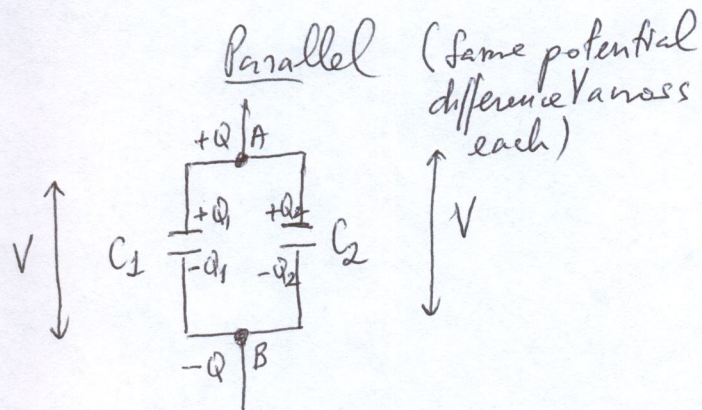 Parallel (same potential
difference V across
each)
+Q A
+Q1 +Q2
V C1 C2 V
-Q1 -Q2
-Q B